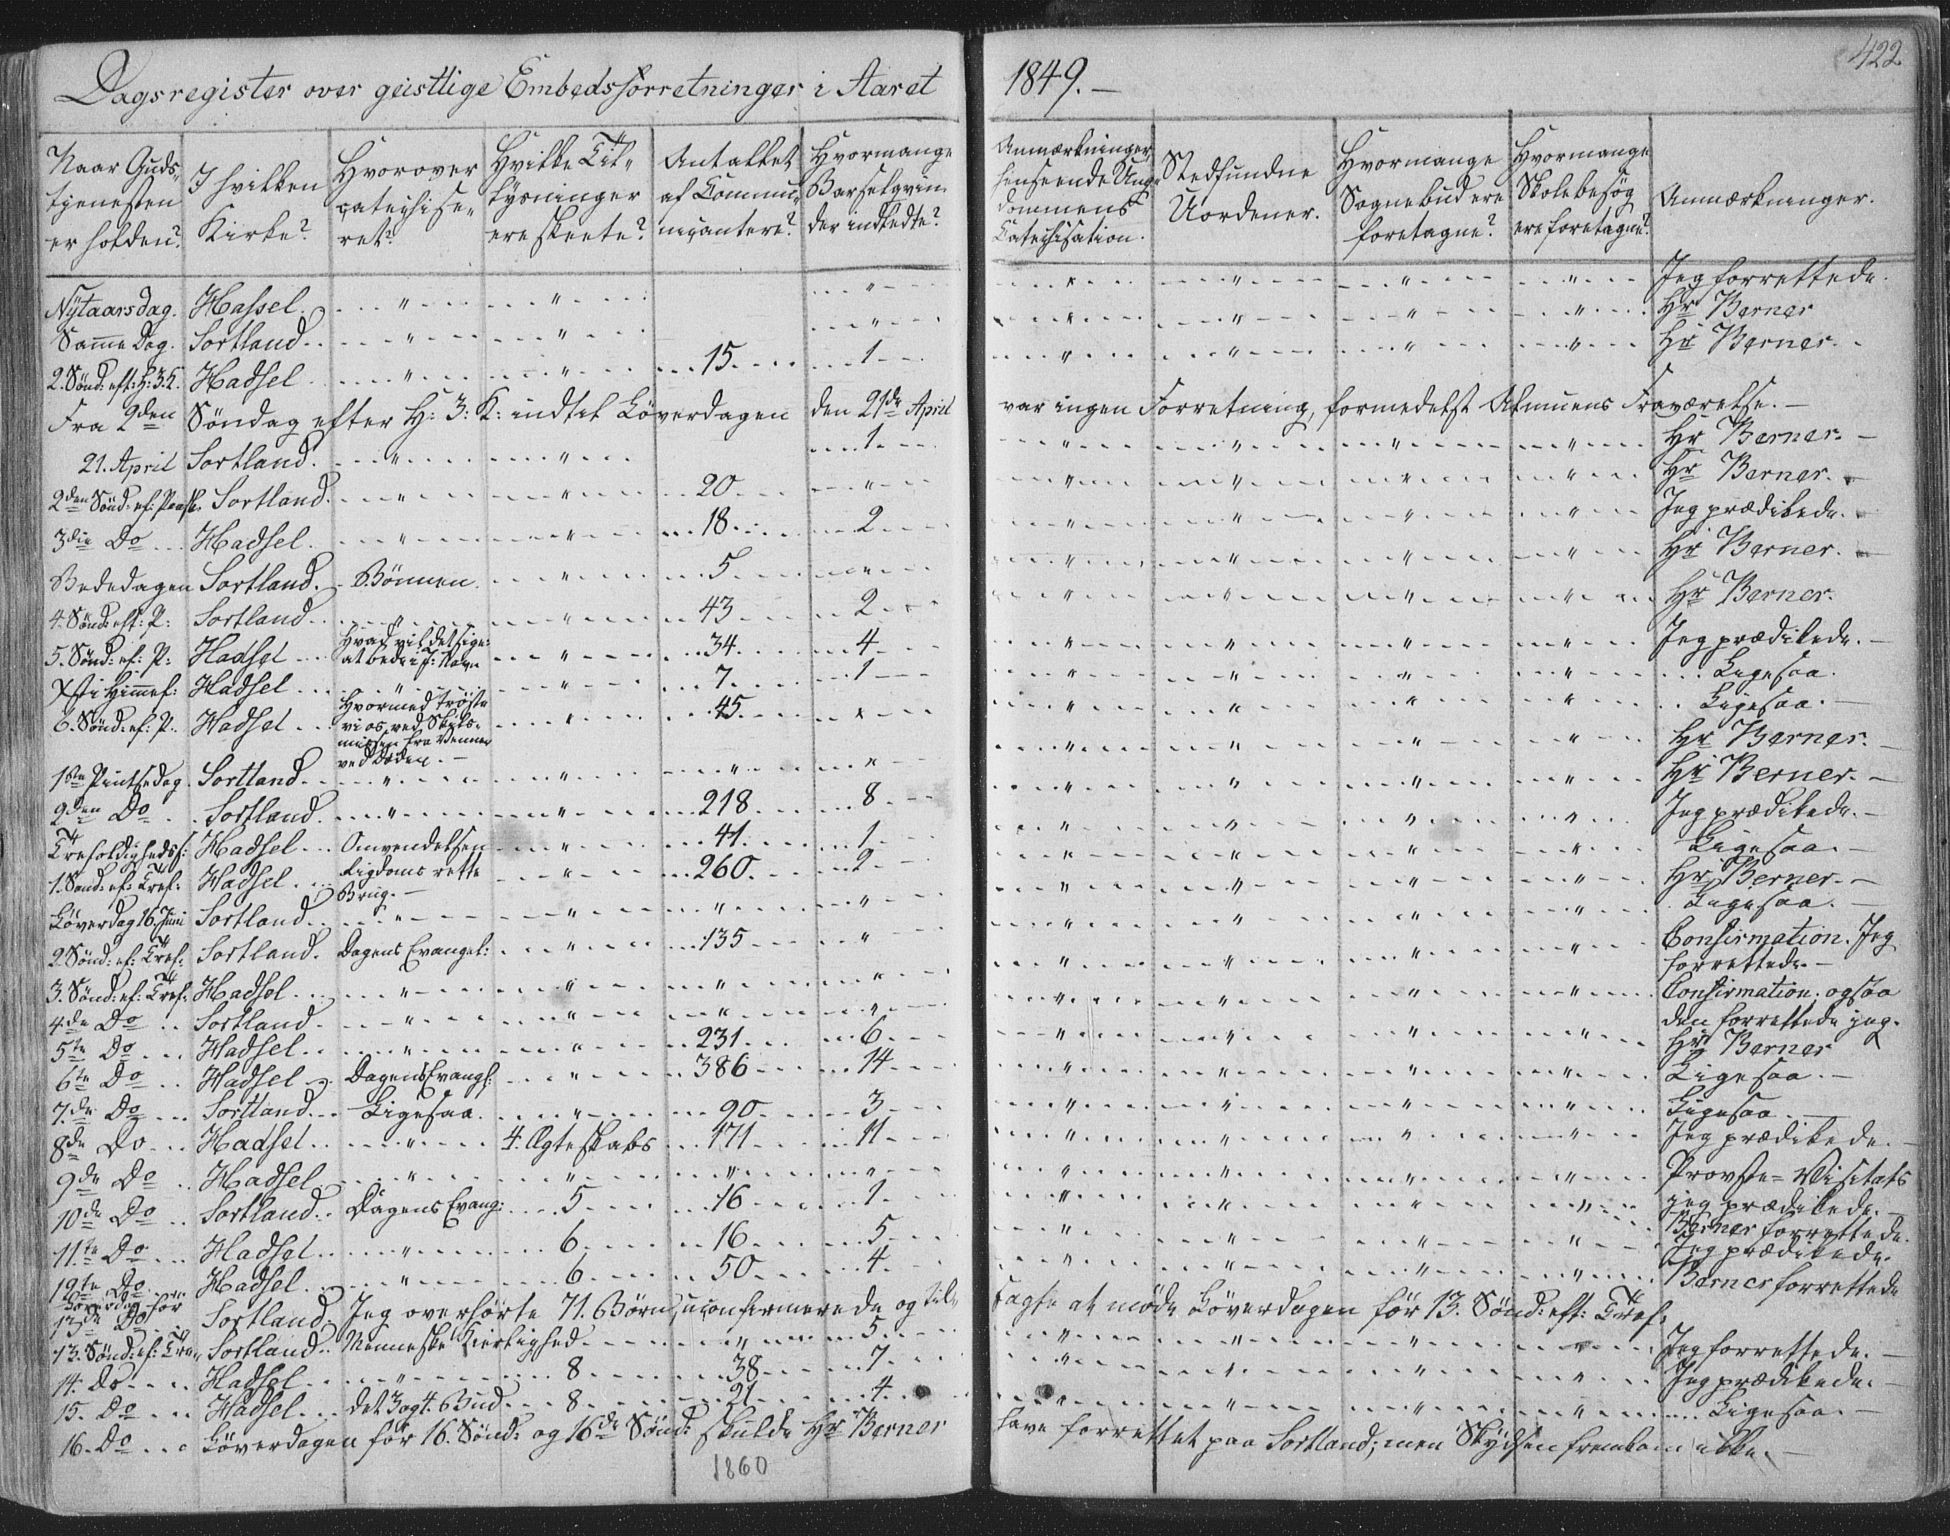 Dagsregister over geistlige Embedsforretninger i Aaret 1849.—
422
Naar Guds- tjenesten er holden? | I hvilken Kirke? | Hvorover catechise- ret? | Hvilke Til- lysninger ere skeete? | Antallet af Commu- nicantere? | Hvormange Barselqvin- der indledte? | Anmærkninger henseende Ung- dommens Catechisation. | Stedfundne Uordener. | Hvormange Sognebud ere foretagne? | Hvormange Skolebesøg ere foretagne? | Anmærkninger.
Nÿtaarsdag. Hassel. " " " " " " " Jeg forrettede.
Samme Dag. Sortland. " " " " " " " Hr Berner
2. Sønd: eft: H: 3. K. Hadsel " " 15 1 " " " " Hr Berner.
Fra 2den Søndag efter H: 3: K: indtil Löverdagen den 21de April var ingen Forretning, formedelst Almuens Fraværelse.—
21. April Sortland. " " 1 " " " " Hr Berner.—
2den Sönd: ef: Paask. Sortland. " " 20 " " " " " Hr Berner.
3die Do Hadsel. " " 18 2 " " " " Jeg prædikede.
Bededagen Sortland. Bönnen " 5 " " " " " Hr Berner.
4. Sönd: eft: P: Sortland. " " 43 2 " " " " Hr Berner.
5. Sönd: ef: P: Hadsel Hvad vil det sige: at bede i J: Navn " 34 4 " " " " Jeg prædikede.—
Xsti Himmelf: Hadsel " " 7 1 " " " " Ligesaa.
6. Sönd: ef: P. Hadsel Hvormed tröste vi os ved Skils- missen fra Venner ved Döden.— " 45 " " " " " Ligesaa.—
1ste Pintsedag Sortland. " " " " " " " " Hr Berner.—
2den Do Sortland. " " 218 8 " " " " Hr Berner.—
Trefoldighedsf: Hadsel Omvendelsen " 41 1 " " " " Jeg prædikede.—
1. Sönd: ef: Tref: Hadsel. Rigdoms rette Brug.— " 260 2 " " " " Ligesaa.—
Löverdag 16 Juni Sortland. " " " " " " " " Hr Berner.—
2. Sönd: ef: Tref: Sortland. Dagens Evangel: " 135 " " " " " Ligesaa.—
3. Sönd: ef: Tref: Hadsel. " " " " " " " " Confirmation. Jeg forrettede.—
4de Do Sortland. " " " " " " " " Confirmation. ogsaa den forrettede jeg.
5te Do Hadsel. " " 231 6 " " " " Hr Berner
6te Do Hadsel Dagens Evangl: " 386 14 " " " " Ligesaa.—
7de Do Sortland. Ligesaa. " 90 3 " " " " Ligesaa.—
8de Do Hadsel. " 4. Ægteskabs 171 11 " " " " Jeg prædikede.—
9de Do Hadsel " " " " " " " " Provste-Visitats jeg prædikede.—
10de Do Sortland. Dagens Evang: 5 16 1 " " " " Berner forrettede.
11te Do Hadsel " 6 16 5 " " " " Jeg prædikede.
12te Do Hadsel. " 6 50 4 " " " " Berner forrettede
Löverdag för 13de Do Sortland. Jeg overhörte 71. Börn, uconfirmerede og til- sagte at møde Löverdagen för 13. Sönd: eft: Tref.
13. Sönd: ef: Tre. Sortland. Menneske Kierlighed " 5 " " " " Jeg forrettede.—
14. Do Hadsel " 8 38 7 " " " " Jeg prædikede.—
15. Do Hadsel det 3 og 4. Bud 8 21 4 " " " " Ligesaa.—
16. Do Löverdagen för 16. Sönd: og 16de Sönd: skulde Hr Berner have forrettet paa Sortland; men Skÿdsen fremkom ikke.—
1860